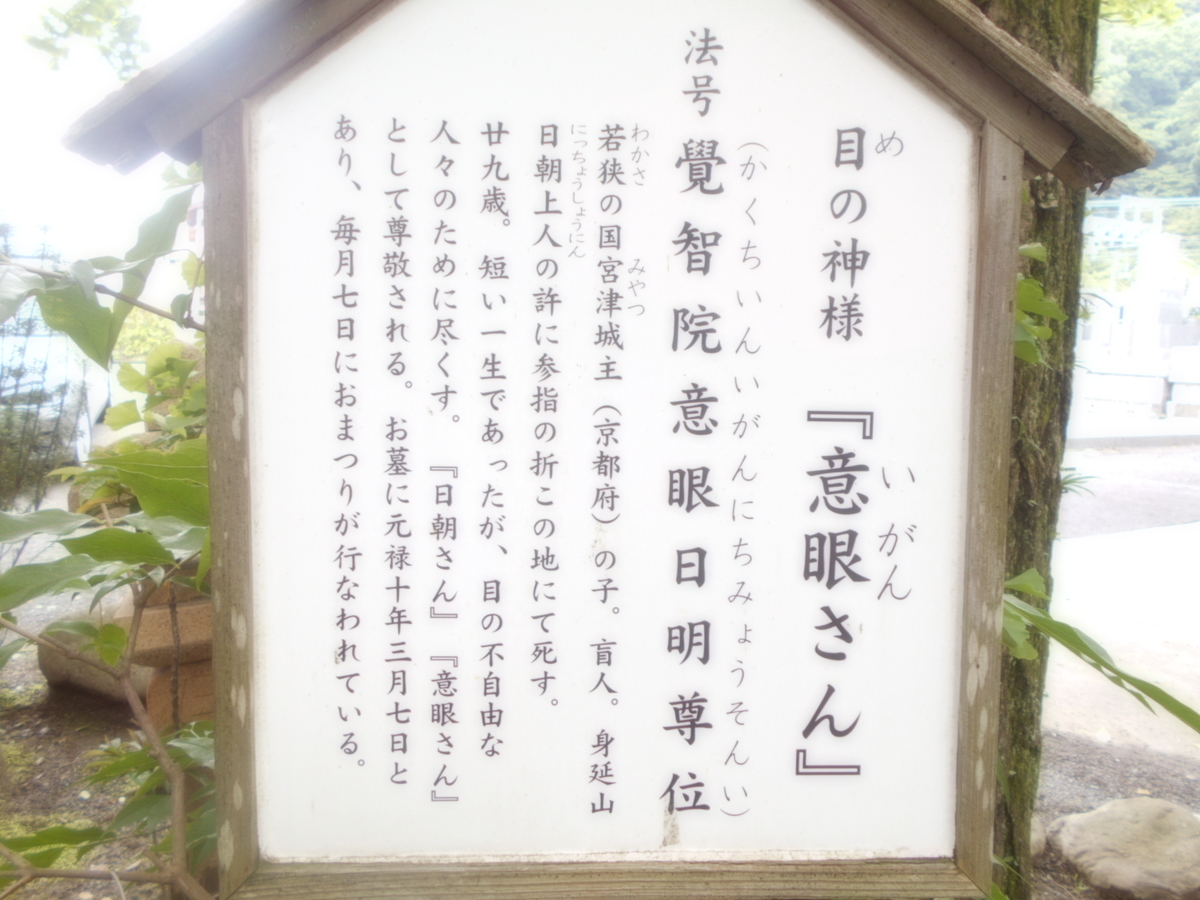 目の神様　『意眼さん』
め　いがん
（かくちいんいがんにちみょうそんい）
法号 覺智院意眼日明尊位
わかさ　みやつ
若狭の国宮津城主（京都府）の子。盲人。身延山
にっちょうしょうにん
日朝上人の許に参指の折この地にて死す。
廿九歳。短い一生であったが、目の不自由な
人々のために尽くす。『日朝さん』『意眼さん』
として尊敬される。お墓に元禄十年三月七日と
あり、毎月七日におまつりが行なわれている。